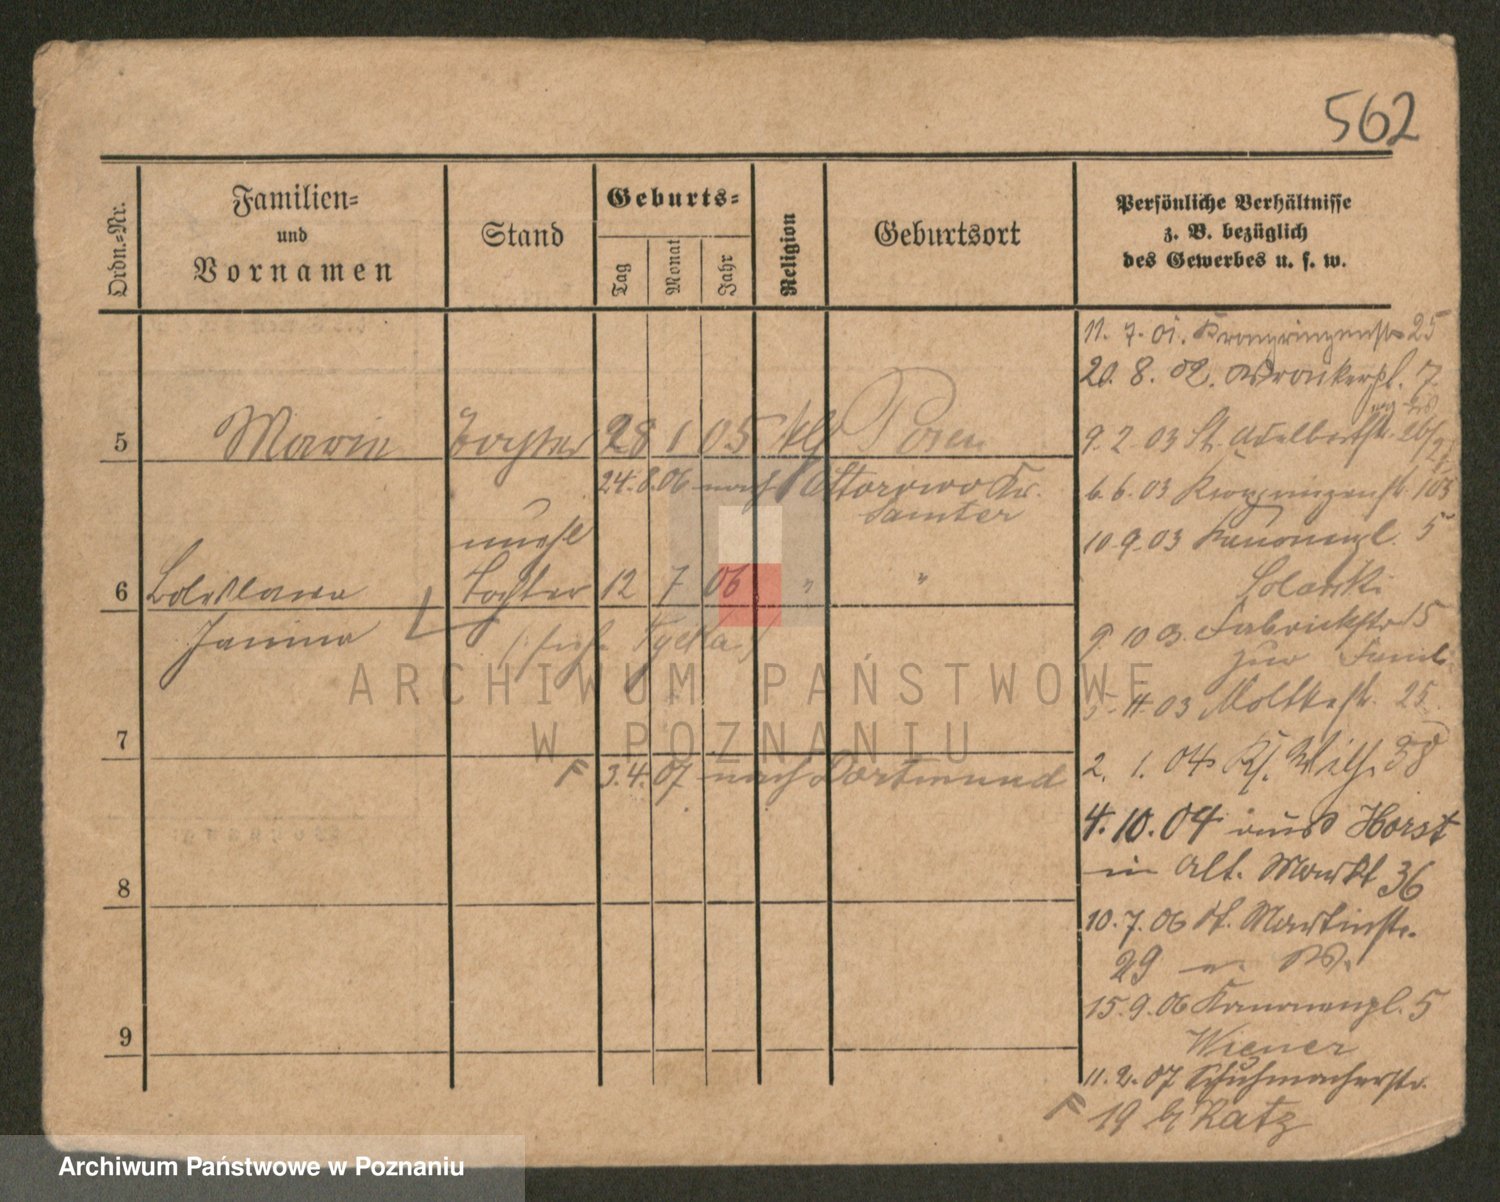 562
Ordn.-Nr.
Familien-
und
Vornamen
Stand
Geburts-
Tag
Monat
Jahr
Religion
Geburtsort
Persönliche Verhältnisse
z. B. bezüglich
des Gewerbes u. s. w.
5 Maria Tochter 28 1 05 Posen
24.8.06 nach Ottorowo Kr.
Samter
unehl
6 Boleslawa Tochter 12 7 06 " "
Janina
7
F 3.4.07 nach Dortmund
8
9
11. 7. 01. Kronprinzenstr 25
20. 8. 02. Wronkerpl. 7.
9. 2. 03 St. Adalbertstr. 26/27
6. 6. 03 Kronprinzenstr. 103
10. 9. 03 Kanonenpl. 5
Solarski
9. 10 03. Fabrikstr 5
zur Famil.
5. 11. 03 Moltkestr. 25
2. 1. 04 Ks. Wilh. 38
4. 10. 04 aus Horst
in Alt. Markt 36
10. 7. 06 St. Martinstr.
29
15. 9. 06 Kanonenpl. 5
Wiener
11. 2. 07 Schuhmacherstr.
F 19 b/ Katz
ARCHIWUM PAŃSTWOWE
W POZNANIU
Archiwum Państwowe w Poznaniu